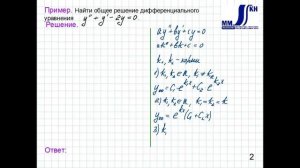 Пример. Найти общее решение дифференциального
уравнения y'' + y' - 2y = 0
Решение.
ay'' + by' + cy = 0
ak² + bk + c = 0
k₁, k₂ - корни
1) k₁, k₂ ∈ R, k₁ ≠ k₂
y₀₀ = C₁e^{k₁x} + C₂e^{k₂x}
2) k₁, k₂ ∈ R, k₁ = k₂ = k
y₀₀ = e^{kx}(C₁ + C₂x)
3) k₁
Ответ:
2